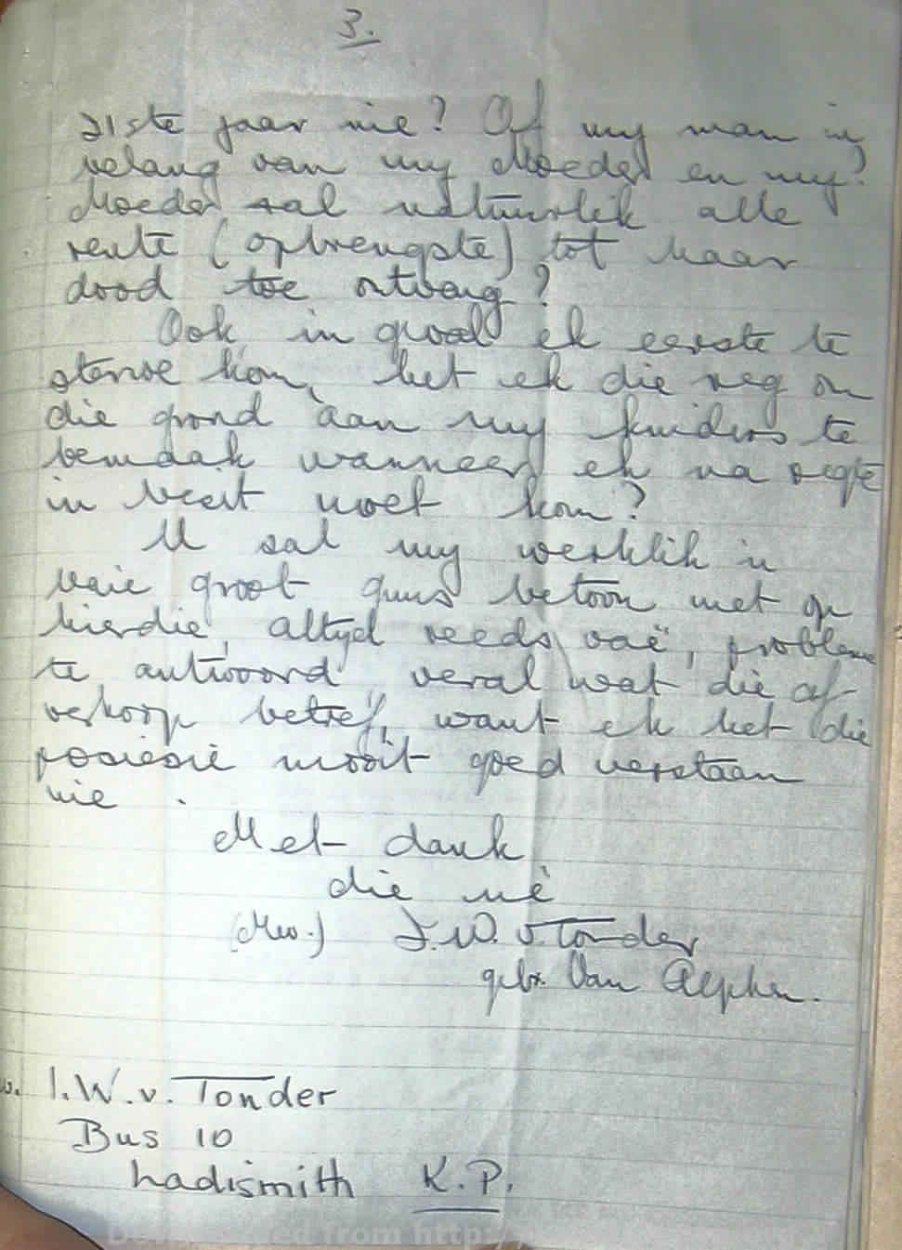 3.
21ste jaar nie? Of my man in
belang van my Moeder en my?
Moeder sal natuurlik alle
rente (opbrengste) tot haar
dood toe ontvang?
Ook in geval ek eerste te
sterwe kom, het ek die reg om
die grond aan my kinders te
bemaak wanneer ek na regte
in besit moet kom?
U sal my werklik 'n
baie groot guns betoon met op
hierdie, altyd reeds vaë, probleme
te antwoord veral wat die af-
verkoop betref, want ek het die
posiesie nooit goed verstaan
nie.
Met dank
die uwe
(Mev.) I.W. v Tonder
gebr. Van Alphen.
I.W. v. Tonder
Bus 10
Ladismith K.P.